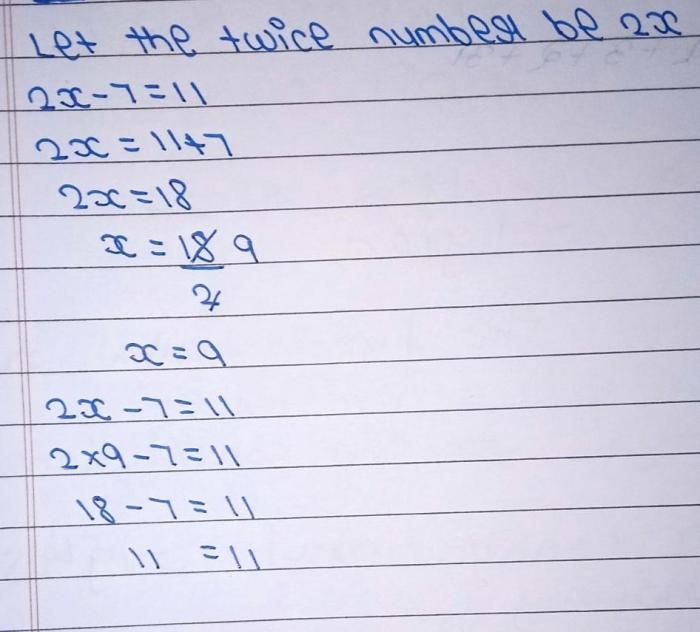 Let the twice number be 2x
2x-7=11
2x=11+7
2x=18
x=18 9
2
x=9
2x-7=11
2×9-7=11
18-7=11
11 =11